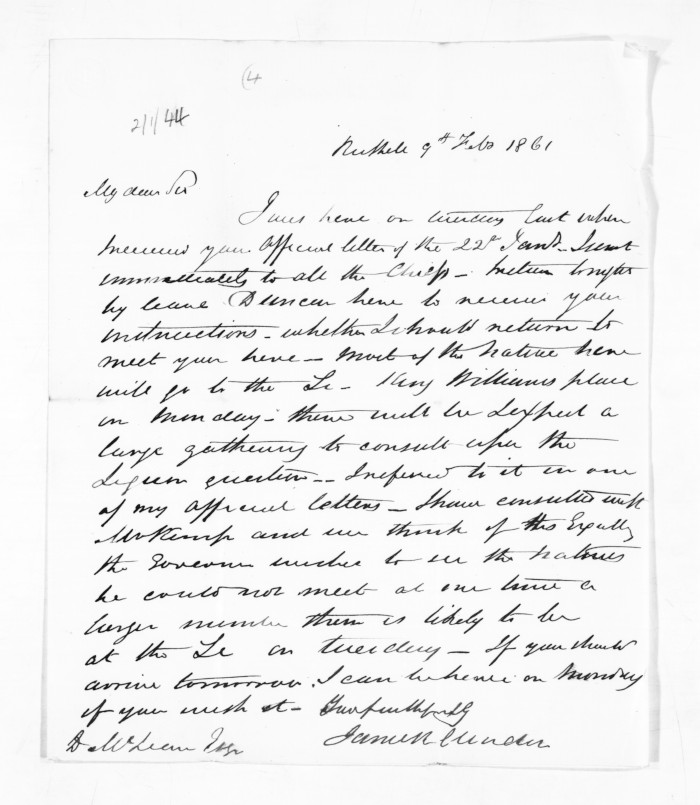 (4
2/1/44
Russell 9th Feb 1861
My dear Sir
I was here on tuesday last when
received your Official letter of the 22nd Jany. I sent
immediately to all the Chiefs – return tonight
by leave Duncan here to receive your
instructions – whether I should return to
meet you here – most of the Natives here
will go to the Te – King Williams place
on Monday – there will be I expect a
large gathering to consult upon the
question – I referred to it in one
of my official letters – I have consulted with
Mr Kemp and we think if His Excelly
the Governor wishes to see the Natives
he could not meet at one time a
larger number than is likely to be
at the Te on tuesday – If you should
arrive tomorrow. I can be here on Monday
if you wish it – Yours faithfully
D McLean Esqr James R Clendon